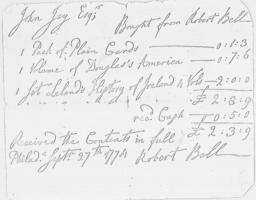 John Jay Esqr
Bought from Robert Bell
1 Pack of Plain Cards 0:1:3
1 Volume of Douglas's America 0:7:6
1 Set Lelands History of Ireland 4 Vols 2:0:0
£ 2:8:9
recd. Cash 0:5:0
£ 2:3:9
Received the Contents in full
Philada. Septr. 27th 1774 Robert Bell